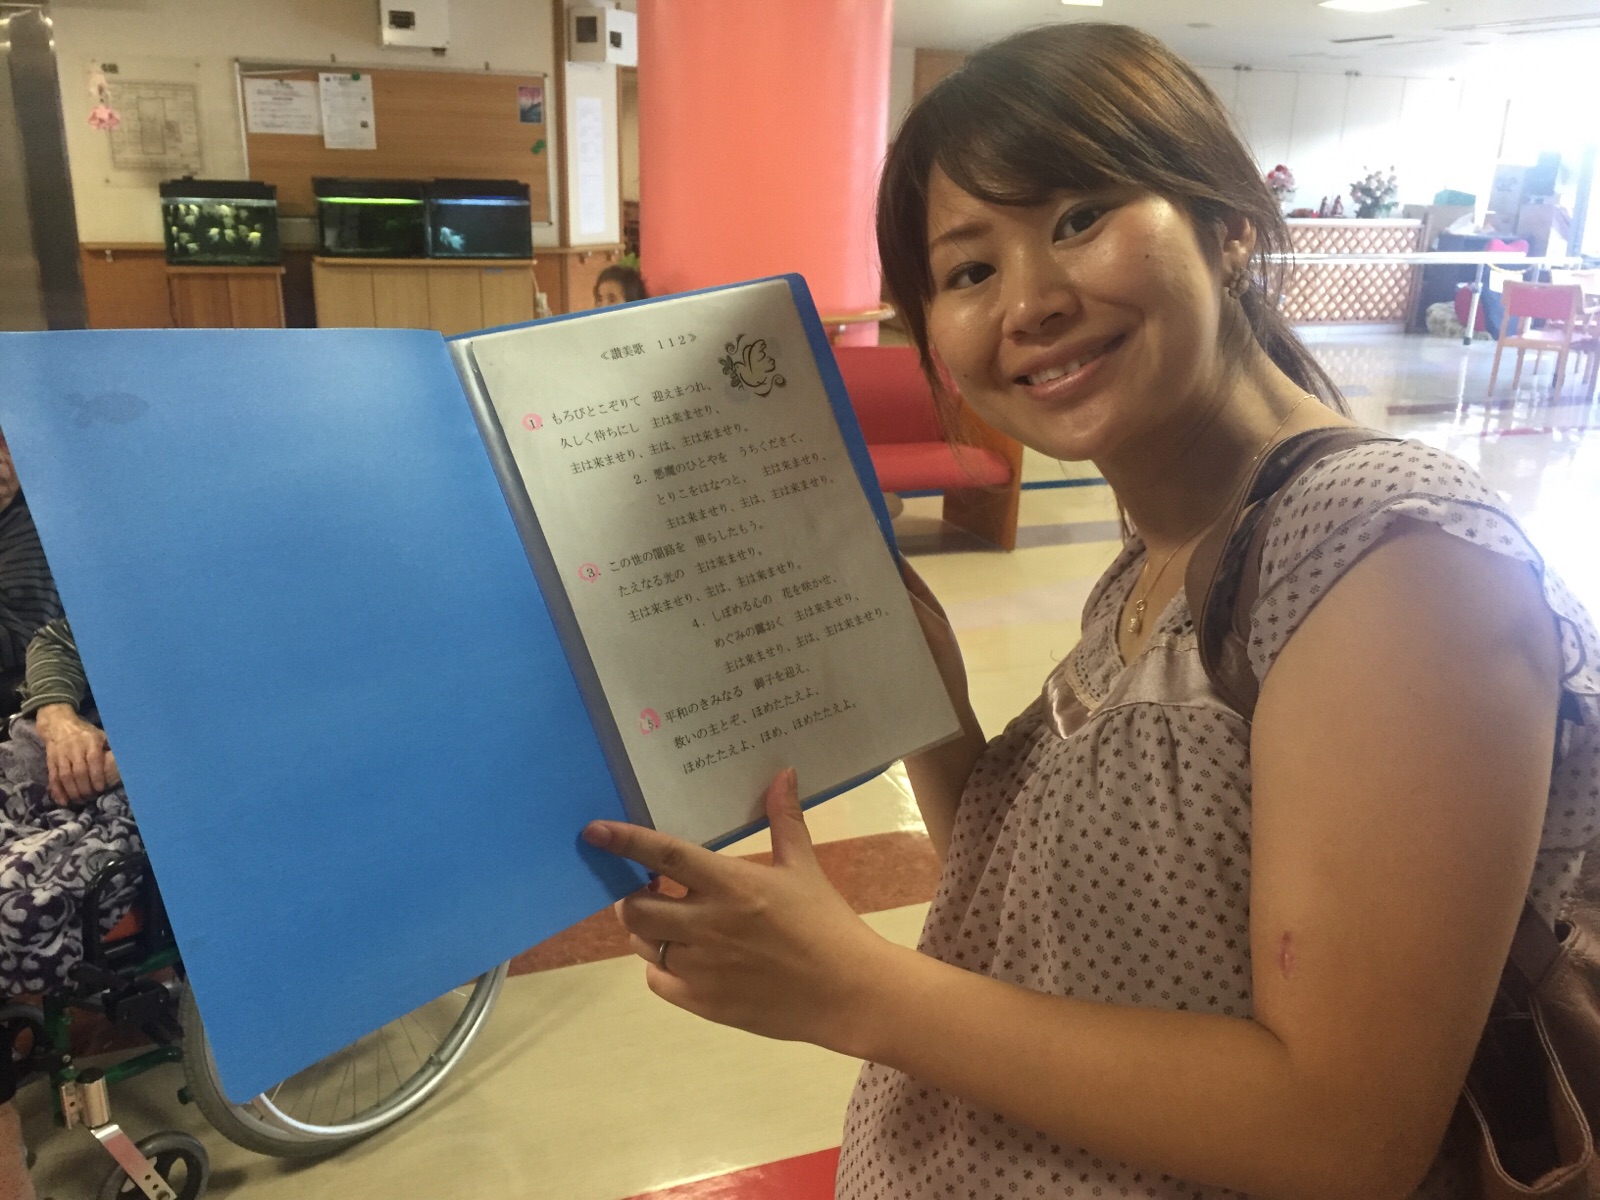 ≪讃美歌　１１２≫
1. もろびとこぞりて　迎えまつれ、
久しく待ちにし　主は来ませり、
主は来ませり、主は、主は来ませり。
2. 悪魔のひとやを　うちくだきて、
とりこをはなつと、　主は来ませり、
主は来ませり、主は、主は来ませり。
3. この世の闇路を　照らしたもう。
たえなる光の　主は来ませり。
主は来ませり、主は、主は来ませり。
4. しぼめる心の　花を咲かせ、
めぐみの露おく　主は来ませり、
主は来ませり、主は、主は来ませり。
5. 平和のきみなる　御子を迎え、
救いの主とぞ、ほめたたえよ、
ほめたたえよ、ほめ、ほめたたえよ。